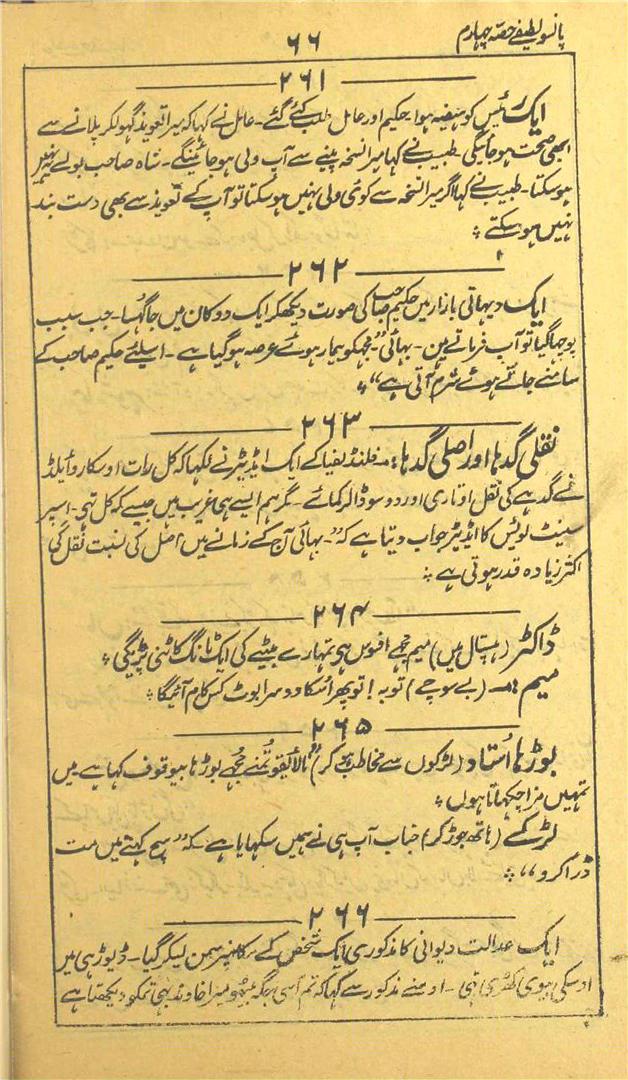 پانسو لطیفے حصہ چہارم
۶۶
۲۶۱
ایک رئیس کو ہیضہ ہوا۔ حکیم اور عامل طلب کئے گئے۔ عامل نے کہا کہ میرا تعویذ گھولکر پلانے سے
ابھی صحت ہو جائیگی۔ طبیب نے کہا میرا نسخہ پینے سے آپ ولی ہو جائینگے۔ شاہ صاحب بولے یہ نہیں
ہو سکتا۔ طبیب نے کہا اگر میرا نسخہ سے کوئی ولی نہیں ہو سکتا تو آپ کے تعویذ سے بھی دست بند
نہیں ہو سکتے ؞
۲۶۲
ایک دیہاتی بازار میں حکیم صاحب کی صورت دیکھکر ایک دوکان میں جا گہسا۔ جب سبب
پوچہا گیا تو آپ فرماتے ہین۔ بھائی” مجہکو بیمار ہوئے عرصہ ہو گیا ہے۔ اسلئے حکیم صاحب کے
سامنے جاتے ہوئے شرم آتی ہے“ ؞
۲۶۳
نقلی گدہا اور اصلی گدہا :۔ فلنڈلفیا کے ایک اڈیٹر نے لکہا کہ کل رات اوسکار وائیلڈ
نے گدہے کی نقل اوتاری اور دو سو ڈالر کمائے۔ مگر ہم ایسے ہی غریب میں جیسے کہ کل تہی۔ اسپر
سینٹ لوئیس کا اڈیٹر جواب دیتا ہے کہ”۔ بہائی آج کے زمانے میں اصل کی نسبت نقل کی
اکثر زیادہ قدر ہوتی ہے ؞
۲۶۴
ڈاکٹر (ہسپتال میں) میم مجہے افسوس ہی تمہارے بیٹے کی ایک ٹانگ کاٹنی پڑیگی ؞
میم :۔ (بے سوچے) توبہ ! تو پھر اسکا دوسرا بوٹ کس کام آئیگا ؞
۲۶۵
بوڑہا اُستاد (لڑکوں سے مخاطب ہو کر) ”نالائقو تمنے مجہے بوڑہا بیوقوف کہا ہے میں
تمہیں مزا چکہاتا ہوں ؞
لڑکے (ہاتھ جوڑ کر) جناب آپ ہی نے ہمیں سکہایا ہے کہ ”سچ کہتے میں مت
ڈرا کرو“ ؞
۲۶۶
ایک عدالت دیوانی کا مذکوری ایک شخص کے مکانپر سمن لیکر گیا۔ ڈیوڑہی میں
اوسکی بیوی کھڑی تہی۔ اوسنے مذکور سے کہا کہ تم اسی جگہ بیٹھو میرا خاوند بہی تمکو دیکھتا ہے